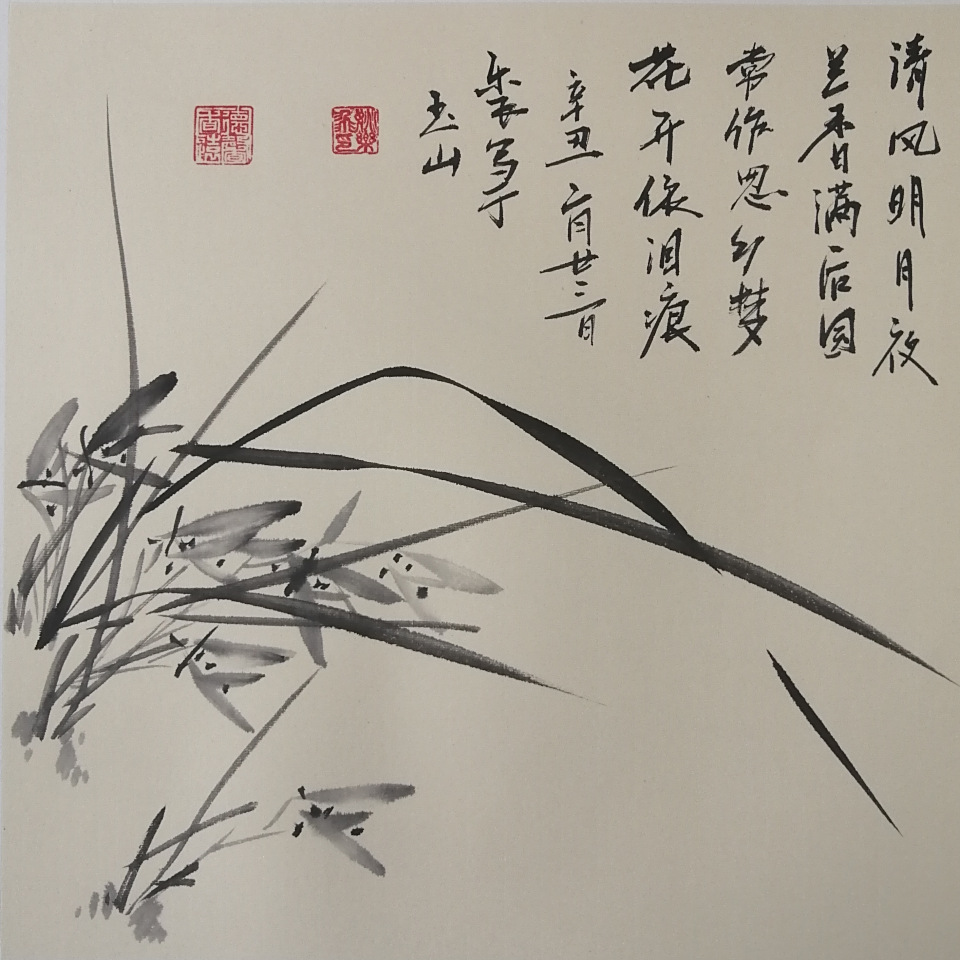 清风明月夜
兰香满后园
常作思乡梦
花开依泪痕
辛丑 月廿三日
乐 写于
玉山
德馨
香遠